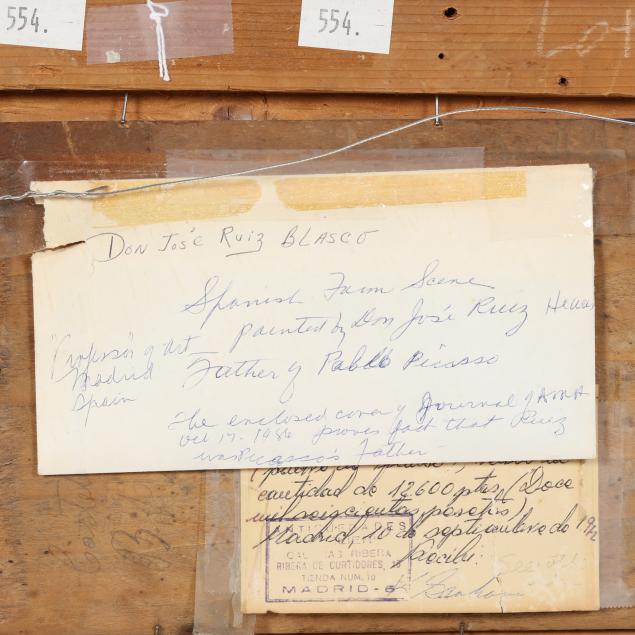 554.
554.
Don José Ruiz Blasco
Spanish Farm Scene
painted by Don José Ruiz
"Professor" of Art
Madrid
Spain
Father of Pablo Picasso
The enclosed cover of Journal of AMA
Oct 17. 1986 proves fact that Ruiz
was Picasso's Father
cantidad de 12.600 ptas, (Doce
mil seiscientas pesetas)
Madrid 20 de septiembre de
Recibi:
ANTIGUEDADES
GALERIAS RIBERA
RIBERA DE CURTIDORES, 15
TIENDA NUM. 10
MADRID-5